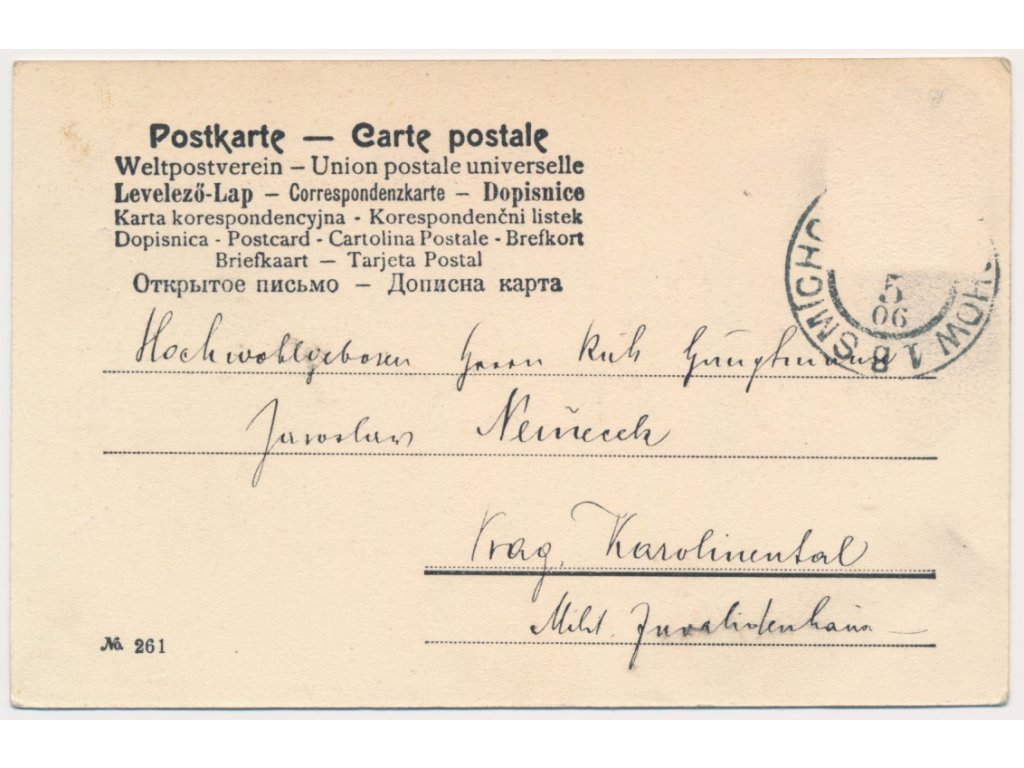 Postkarte — Carte postale
Weltpostverein – Union postale universelle
Levelező-Lap – Correspondenzkarte – Dopisnice
Karta korespondencyjna - Korespondenčni listek
Dopisnica - Postcard - Cartolina Postale - Brefkort
Briefkaart — Tarjeta Postal
Открытое письмо – Дописна карта
SMICHO HOW 1 B
5
06
Hochwohlgeboren Herrn
Jaroslaw Nemecek
Prag, Karolinental
Milit. Invalidenhaus
No. 261